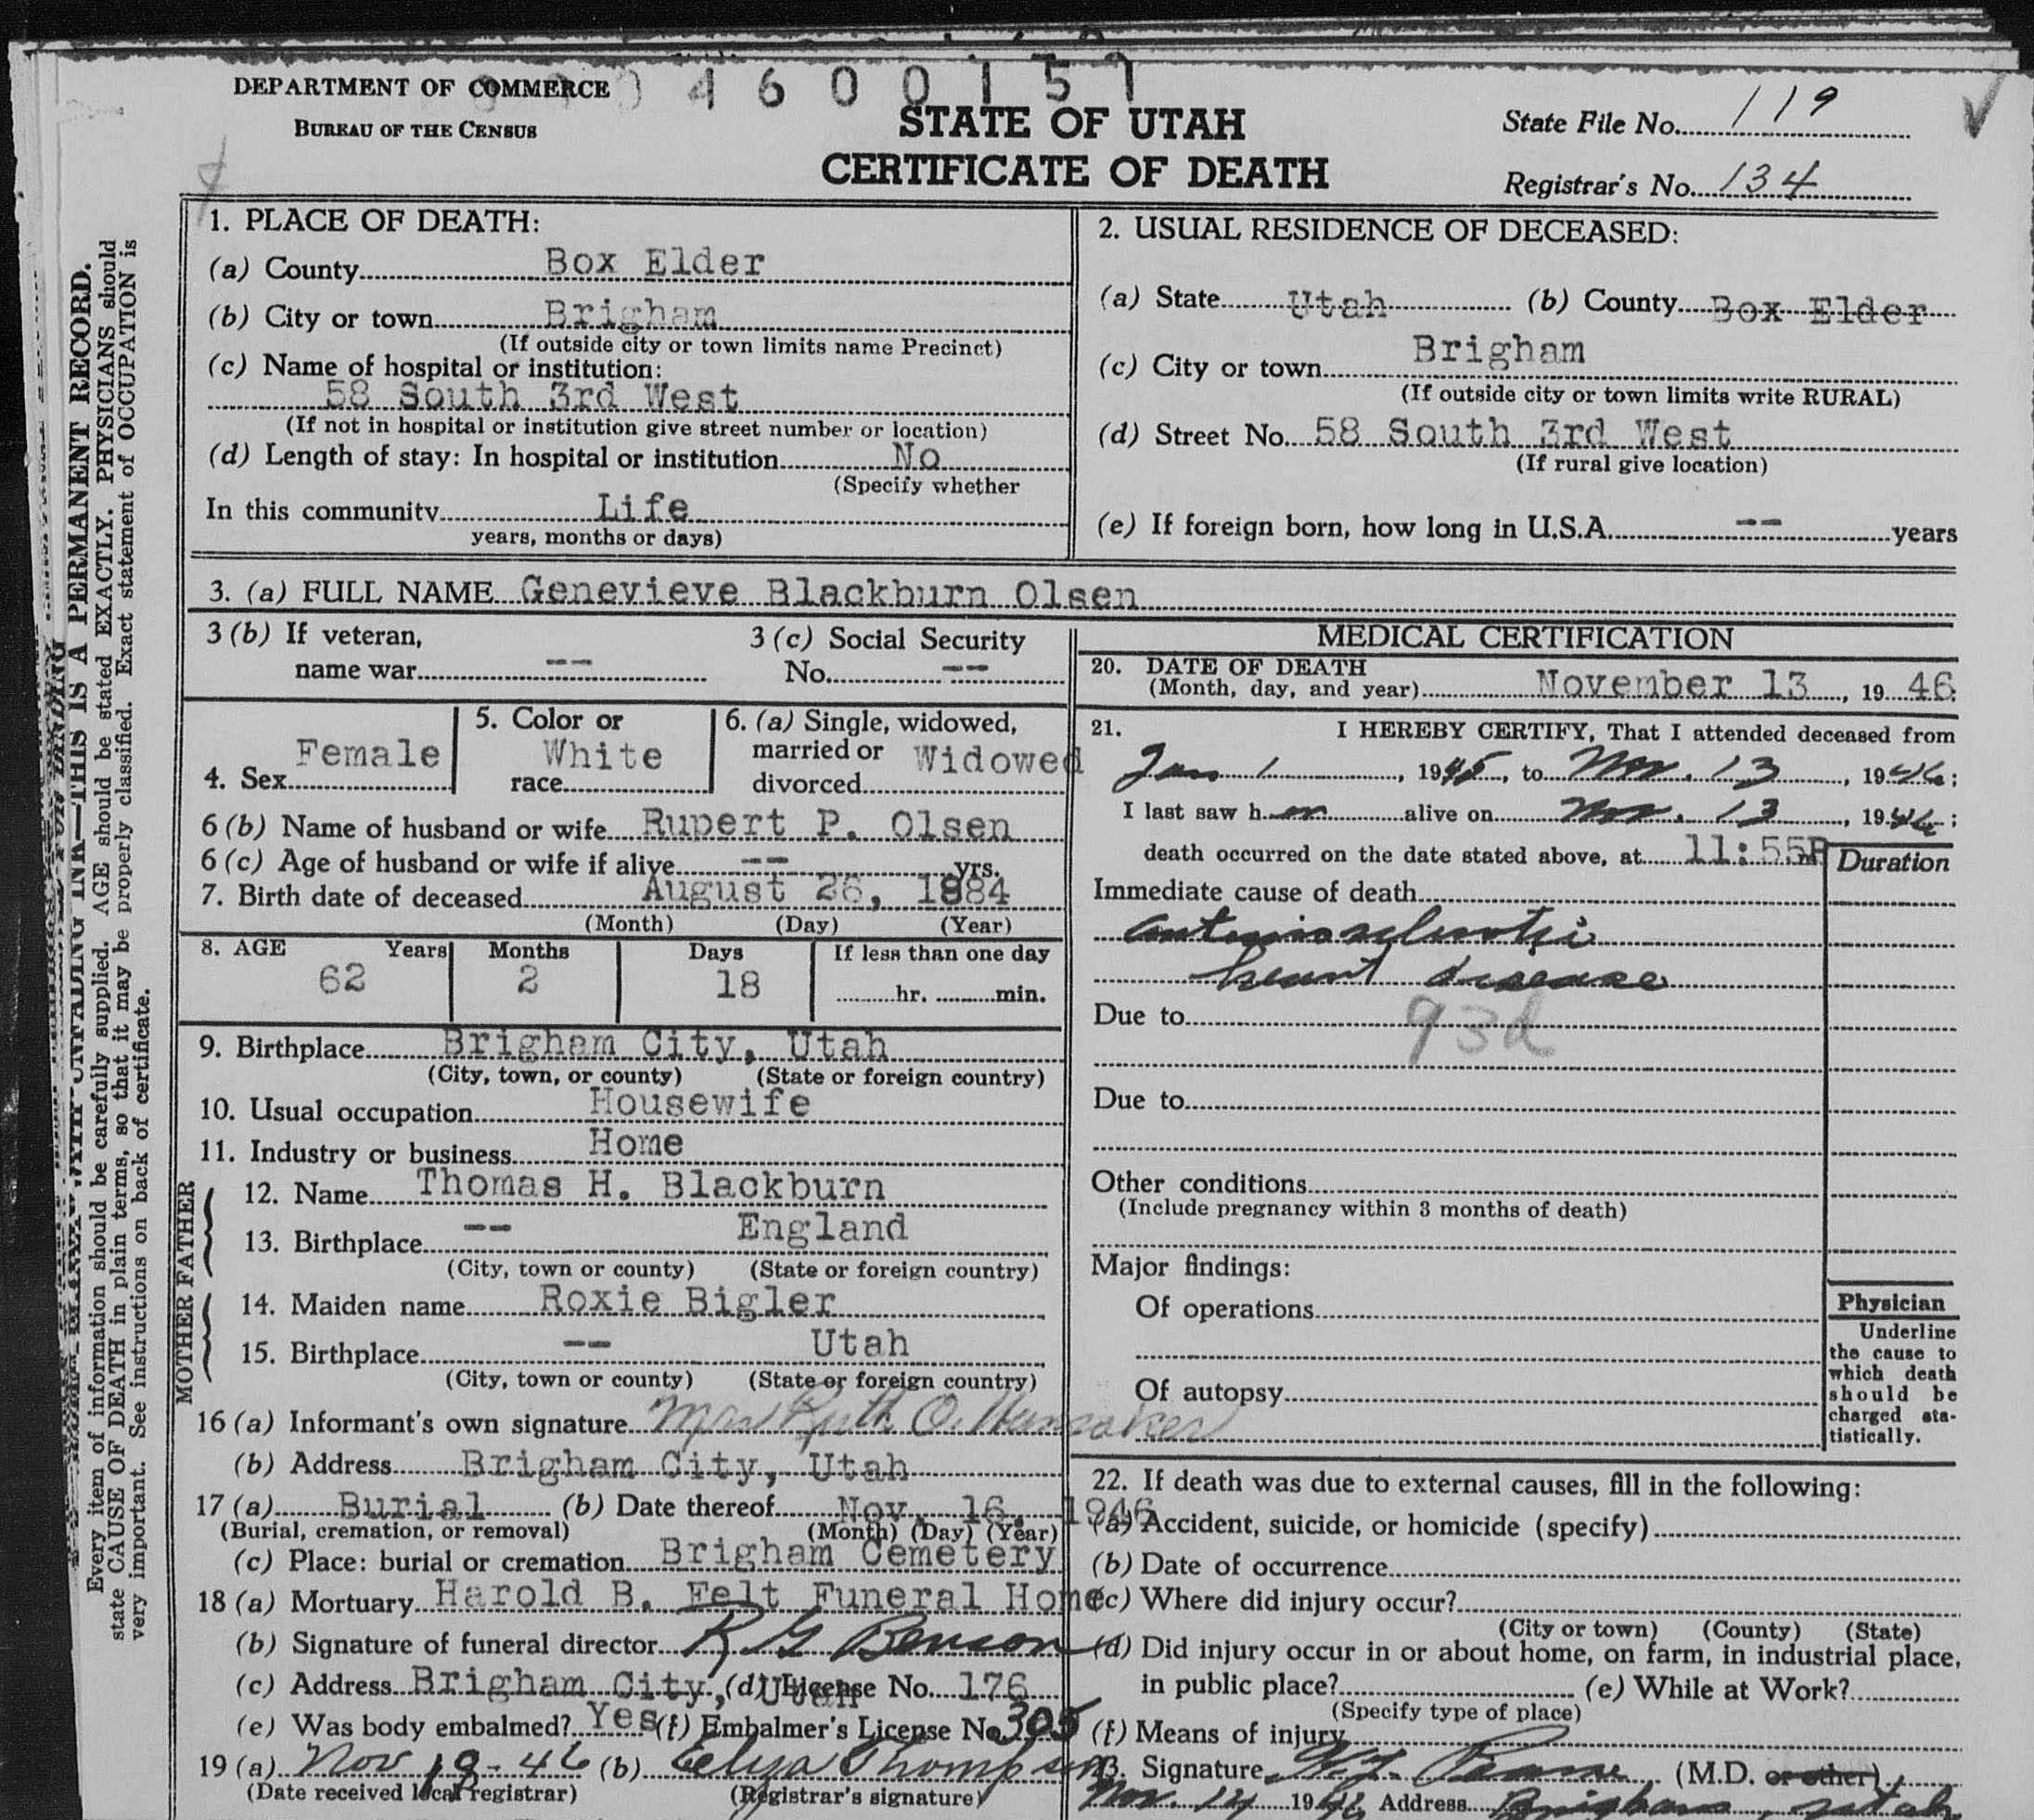 DEPARTMENT OF COMMERCE
BUREAU OF THE CENSUS
4600151
STATE OF UTAH
CERTIFICATE OF DEATH
State File No. 119
Registrar's No. 134
1. PLACE OF DEATH:
(a) County Box Elder
(b) City or town Brigham
(If outside city or town limits name Precinct)
(c) Name of hospital or institution:
58 South 3rd West
(If not in hospital or institution give street number or location)
(d) Length of stay: In hospital or institution No
(Specify whether
In this community Life
years, months or days)
2. USUAL RESIDENCE OF DECEASED:
(a) State Utah (b) County Box Elder
(c) City or town Brigham
(If outside city or town limits write RURAL)
(d) Street No. 58 South 3rd West
(If rural give location)
(e) If foreign born, how long in U.S.A. -- years
3. (a) FULL NAME Genevieve Blackburn Olsen
3 (b) If veteran,
name war --
3 (c) Social Security
No. --
4. Sex Female
5. Color or
race White
6. (a) Single, widowed,
married or
divorced Widowed
6 (b) Name of husband or wife Rupert P. Olsen
6 (c) Age of husband or wife if alive -- yrs.
7. Birth date of deceased August 26, 1884
(Month) (Day) (Year)
8. AGE Years Months Days If less than one day
62 2 18 hr. min.
9. Birthplace Brigham City, Utah
(City, town, or county) (State or foreign country)
10. Usual occupation Housewife
11. Industry or business Home
FATHER
12. Name Thomas H. Blackburn
13. Birthplace -- England
(City, town or county) (State or foreign country)
MOTHER
14. Maiden name Roxie Bigler
15. Birthplace -- Utah
(City, town or county) (State or foreign country)
16 (a) Informant's own signature Mrs Ruth O. Hunsaker
(b) Address Brigham City, Utah
17 (a) Burial (b) Date thereof Nov. 16, 1946
(Burial, cremation, or removal) (Month) (Day) (Year)
(c) Place: burial or cremation Brigham Cemetery
18 (a) Mortuary Harold B. Felt Funeral Home
(b) Signature of funeral director R G Benson
(c) Address Brigham City, Utah (d) License No. 176
(e) Was body embalmed? Yes (f) Embalmer's License No. 305
19 (a) Nov 19-46 (b) Eliza Thompson
(Date received local registrar) (Registrar's signature)
MEDICAL CERTIFICATION
20. DATE OF DEATH
(Month, day, and year) November 13, 1946
21. I HEREBY CERTIFY, That I attended deceased from
Jan 1, 1945, to Nov. 13, 1946;
I last saw her alive on Nov. 13, 1946;
death occurred on the date stated above, at 11:55P m
Duration
Immediate cause of death
arteriosclerotic
heart disease
Due to 93d
Due to
Other conditions
(Include pregnancy within 3 months of death)
Major findings:
Of operations
Of autopsy
Physician
Underline
the cause to
which death
should be
charged sta-
tistically.
22. If death was due to external causes, fill in the following:
(a) Accident, suicide, or homicide (specify)
(b) Date of occurrence
(c) Where did injury occur?
(City or town) (County) (State)
(d) Did injury occur in or about home, on farm, in industrial place,
in public place? (e) While at Work?
(Specify type of place)
(f) Means of injury
23. Signature (M.D. or other)
Nov. 14 1946 Address Brigham, Utah
THIS IS A PERMANENT RECORD.
Every item of information should be carefully supplied. AGE should be stated EXACTLY. PHYSICIANS should
state CAUSE OF DEATH in plain terms, so that it may be properly classified. Exact statement of OCCUPATION is
very important. See instructions on back of certificate.